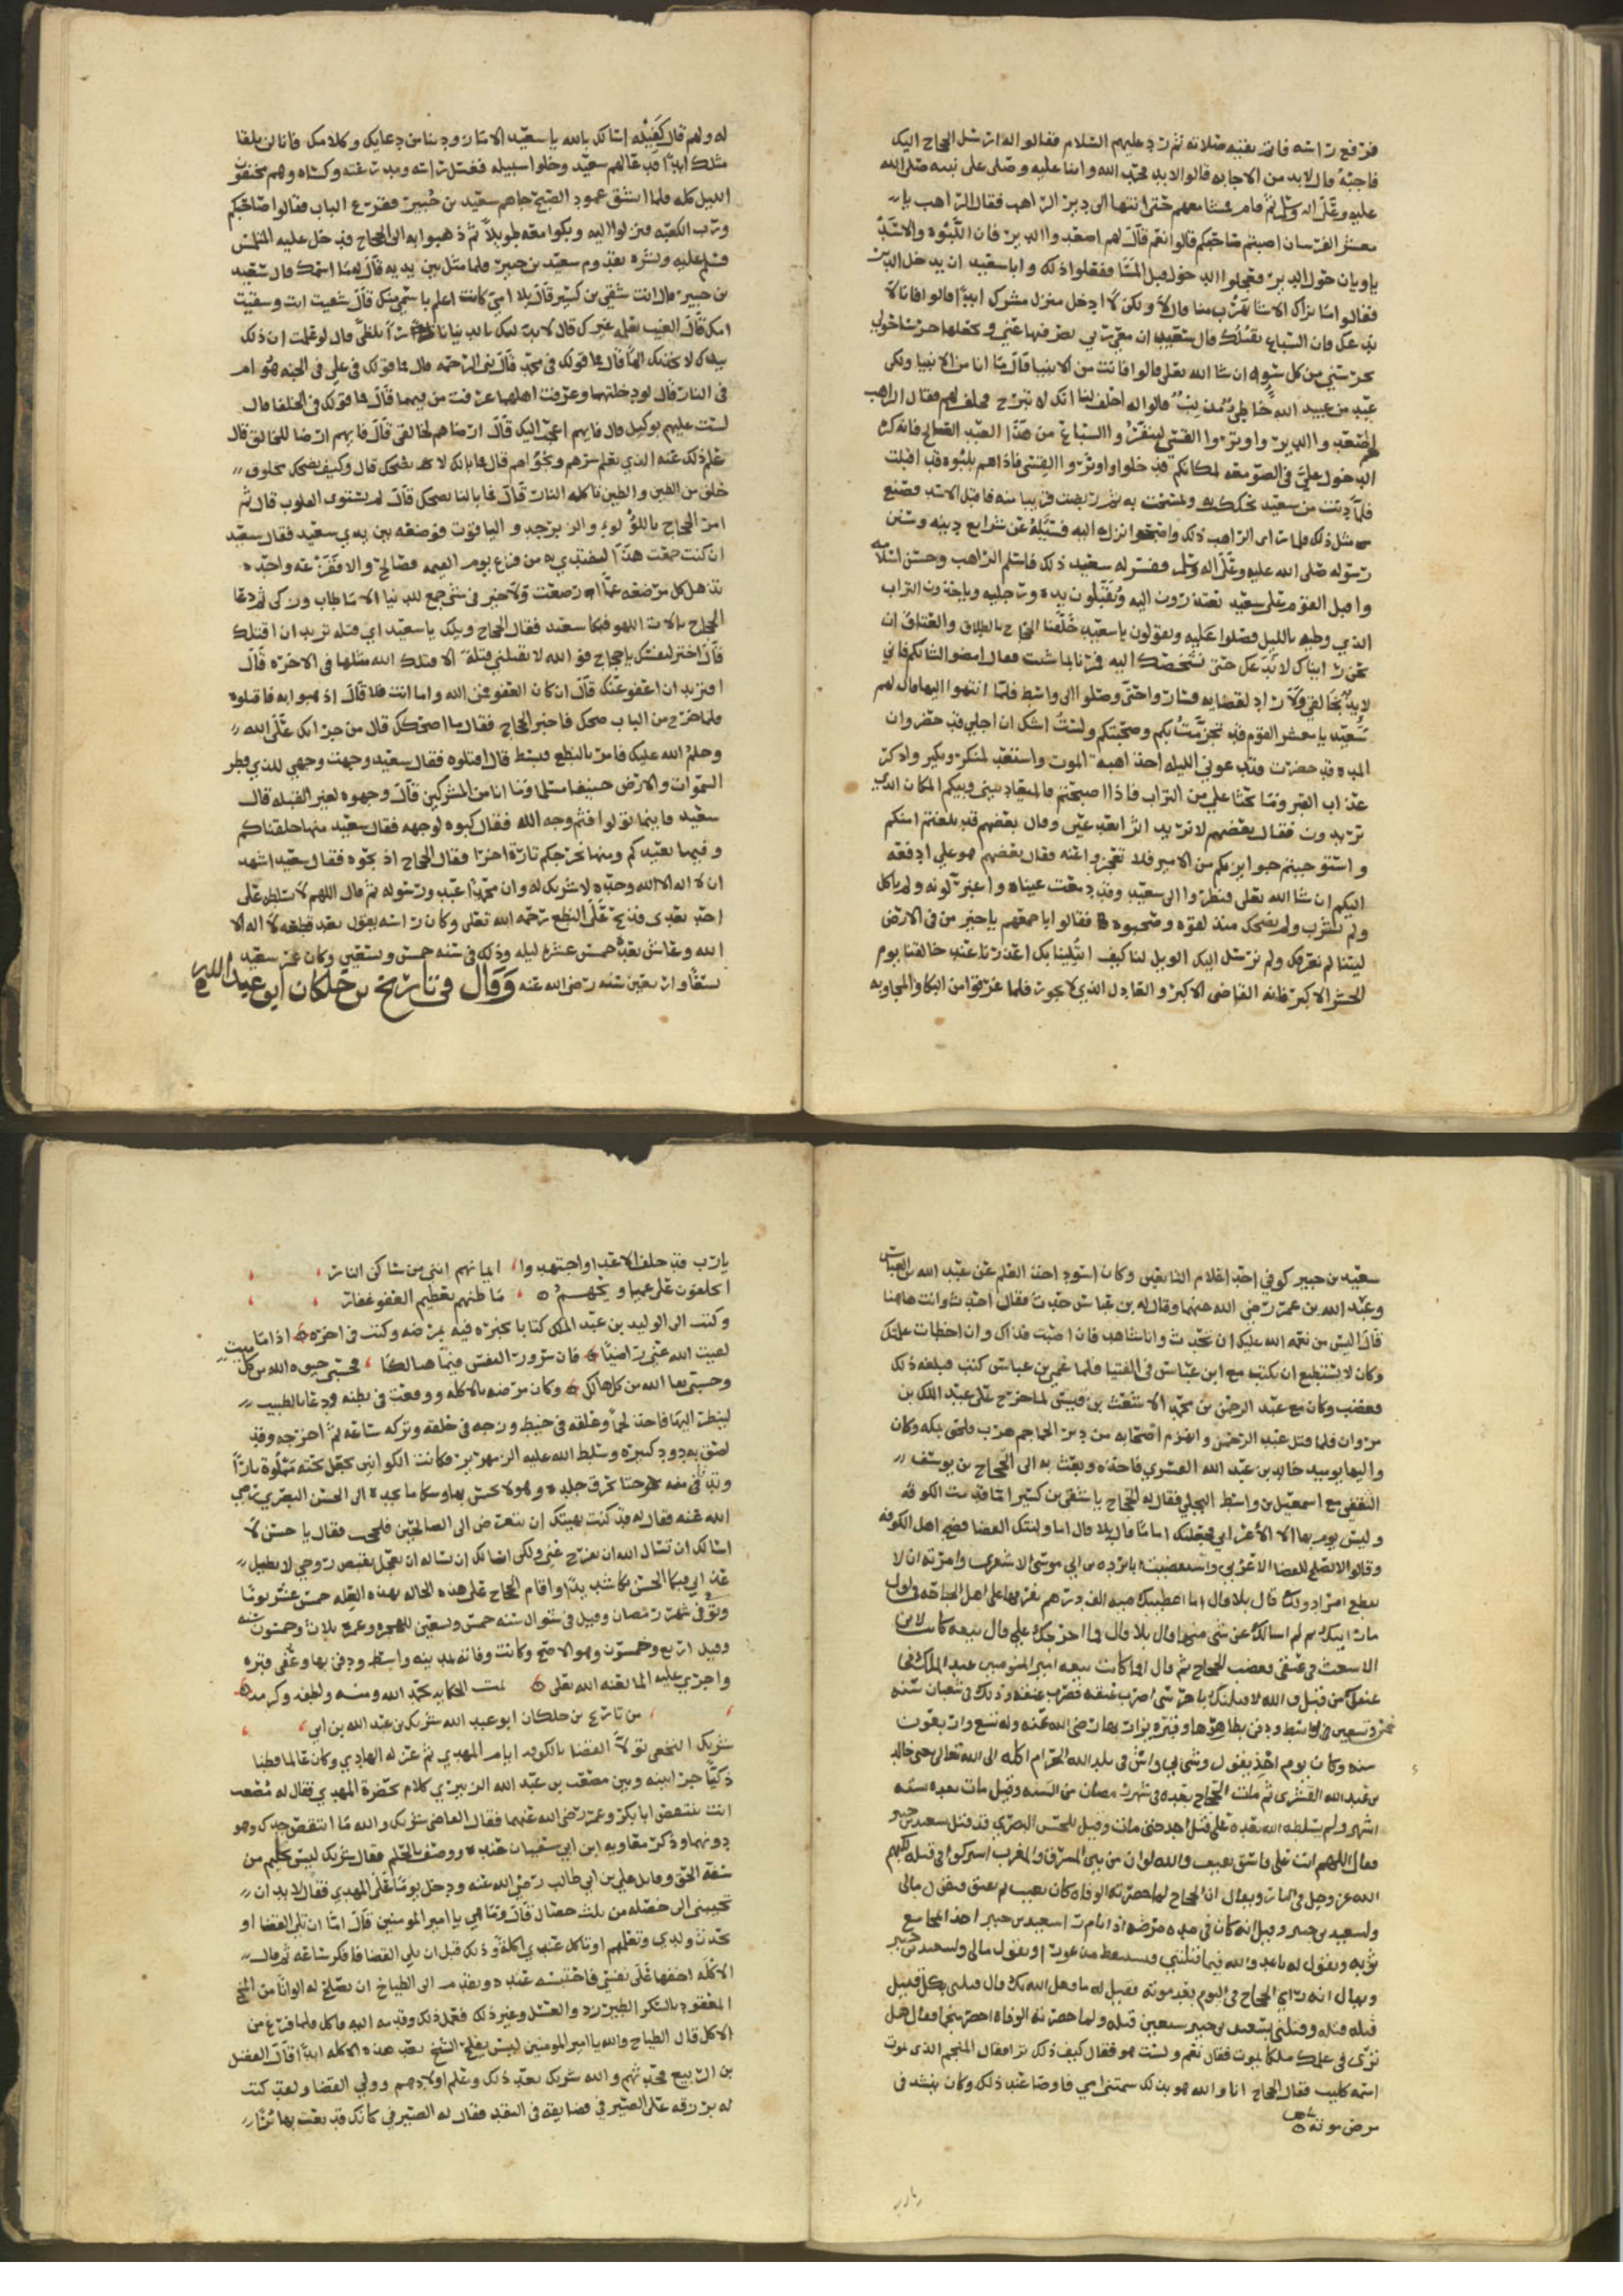 فرفع راسه فاتم بقيه صلاته ثم رد عليهم السلام فقالوا له ارسل الحجاج اليك
فاجبه قال لا بد من الاجابه قالوا لا بد فحمد الله واثنا عليه وصلى على نبيه صلى الله
عليه وعلى اله وسلم ثم قام فمشا معهم حتى انتها الى دير الراهب فقال الراهب يا
معشر الفرسان اصبتم صاحبكم قالوا نعم قال لهم اصعدوا الدير فان اللبوه والاسد
ياويان حول الدير فعجلوا الدخول قبل المسا ففعلوا ذلك وابا سعيد ان يدخل الدير
فقالوا ما نراك الا تريد الهرب منا قال لا ولكن لا ادخل منزل مشرك ابدا قالوا فانا لا
ندعك فان السباع تقتلك قال سعيد ان معي ربي يصرفها عني ويجعلها حرسا حولي
تحرسني من كل سوء ان شا الله تعلى قالوا فانت من الانبيا قال ما انا من الانبيا ولكن
عبد من عبيد الله خاطي مذنب قالوا له احلف لنا انك لا تبرح فحلف لهم فقال الراهب
لهم اصعدوا الدير واوتروا القسي لتنفروا السباع من هذا العبد الصالح فانه كره
الدخول علي في الصومعه لمكانكم فدخلوا واوتروا القسي فاذا هم بلبوه قد اقبلت
فلما دنت من سعيد تحككت به وتمسحت به ثم ربضت قريبا منه فاقبل الاسد فصنع
مثل ذلك فلما راى الراهب ذلك واصبحوا نزل اليه فسئله عن شرايع دينه وسنن
رسوله صلى الله عليه وعلى اله وسلم ففسر له سعيد ذلك فاسلم الراهب وحسن اسلامه
واقبل القوم على سعيد يعتذرون اليه ويقبلون يديه ورجليه وياخذون التراب
الذي وطيه بالليل فصلوا عليه ويقولون يا سعيد حلفنا الحجاج بالطلاق والعتاق ان
نحن رايناك لا ندعك حتى نشخصك اليه فمرنا بما شئت فقال امضوا لشانكم فاني
لايذ بخالقي ولا راد لقضايه فساروا حتى وصلوا الى واسط فلما انتهوا اليها قال لهم
سعيد يا معشر القوم قد تحرمت بكم وصحبتكم ولست اشك ان اجلي قد حضر وان
المده قد حضرت فدعوني الليله اخذ اهبة الموت واستعد لمنكر ونكير واذكر
عذاب القبر وما يحثا علي من التراب فاذا اصبحتم فالميعاد بيني وبينكم المكان الذي
تريدون فقال بعضهم لا نريد اثرا بعد عين وقال بعضهم قد بلغتم امنكم
واستوجبتم جوايزكم من الامير فلا تعجزوا عنه فقال بعضهم هو علي ادفعه
اليكم ان شا الله تعلى فنظروا الى سعيد وقد دمعت عيناه واغبر لونه ولم ياكل
ولم يشرب ولم يضحك منذ لقوه وصحبوه فقالوا باجمعهم يا خير من في الارض
ليتنا لم نعرفك ولم نرسل اليك الويل لنا كيف ابتلينا بك اعذرنا عند خالقنا يوم
الحشر الاكبر فانه القاضي الاكبر والعادل الذي لا يجور فلما فرغوا من البكا والمجاوبه
له ولهم قال كفيله اسالك بالله يا سعيد الا ما زودتنا من دعايك وكلامك فانا لن نلقا
مثلك ابدا فدعا لهم سعيد وخلوا سبيله فغسل راسه ومدرعته وكساه وهم مختفون
الليل كله فلما انشق عمود الصبح جاهم سعيد بن جبير فقرع الباب فقالوا صاحبكم
ورب الكعبه فنزلوا اليه وبكوا معه طويلا ثم ذهبوا به الى الحجاج فدخل عليه المتلمس
فسلم عليه وبشره بقدوم سعيد بن جبير فلما مثل بين يديه قال له ما اسمك قال سعيد
بن جبير قال انت شقي بن كسير قال بلا امي كانت اعلم باسمي منك قال شقيت انت وشقيت
امك قال الغيب يعلمه غيرك قال لابدلنك بالدنيا نارا تلظى قال لو علمت ان ذلك
بيدك لاتخذتك الها قال فما قولك في محمد قال نبي الرحمه قال فما قولك في علي في الجنه هو ام
في النار قال لو دخلتهما وعرفت اهلهما عرفت من فيهما قال فما قولك في الخلفا قال
لست عليهم بوكيل قال فايهم اعجب اليك قال ارضاهم لخالقي قال فايهم ارضا للخالق قال
علم ذلك عند الذي يعلم سرهم ونجواهم قال فما بالك لا تضحك قال وكيف يضحك مخلوق
خلق من الطين والطين تاكله النار قال فما بالنا نضحك قال لم تستوى القلوب قال ثم
امر الحجاج باللؤلوء والزبرجد والياقوت فوضعه بين يدي سعيد فقال سعيد
ان كنت جمعت هذا لتفتدي به من فزع يوم القيمه فصالح والا ففزعة واحده
تذهل كل مرضعه عما ارضعت ولا خير في شي جمع للدنيا الا ما طاب وزكى ثم دعا
الحجاج بالات اللهو فبكا سعيد فقال الحجاج ويلك يا سعيد اي قتله تريد ان اقتلك
قال اختر لنفسك يا حجاج فو الله لا تقتلني قتلة الا قتلك الله مثلها في الاخره قال
افتريد ان اعفو عنك قال ان كان العفو فمن الله واما انت فلا قال اذهبوا به فاقتلوه
فلما خرج من الباب ضحك فاخبر الحجاج فقال ما اضحكك قال من جراتك على الله
وحلم الله عليك فامر بالنطع فبسط قال اقتلوه فقال سعيد وجهت وجهي للذي فطر
السموات والارض حنيفا مسلما وما انا من المشركين قال وجهوه لغير القبله قال
سعيد فاينما تولوا فثم وجه الله فقال كبوه لوجهه فقال سعيد منها خلقناكم
وفيها نعيدكم ومنها نخرجكم تارة اخرا فقال الحجاج اذبحوه فقال سعيد اشهد
ان لا اله الا الله وحده لا شريك له وان محمدا عبده ورسوله ثم قال اللهم لا تسلطه على
احد بعدي فذبح على النطع رحمه الله تعلى وكان راسه يقول بعد قطعه لا اله الا
الله وعاش بعده خمس عشرة ليله وذلك في سنه خمس وتسعين وكان عمر سعيد
تسعا واربعين سنه رضي الله عنه وقال في تاريخ بن خلكان ابو عبد الله
سعيد بن جبير كوفي احد اعلام التابعين وكان اسود اخذ العلم عن عبد الله بن العباس
وعبد الله بن عمر رضي الله عنهما وقال له بن عباس حدث فقال احدث وانت هاهنا
قال اليس من نعمه الله عليك ان تحدث وانا شاهد فان اصبت فذاك وان اخطات علمتك
وكان لا يستطيع ان يكتب مع ابن عباس في الفتيا فلما عمي بن عباس كتب فبلغه ذلك
فغضب وكان مع عبد الرحمن بن محمد الاشعث بن قيس لما خرج على عبد الملك بن
مروان فلما قتل عبد الرحمن وانهزم اصحابه من دير الجماجم هرب فلحق بمكه وكان
واليها يوميذ خالد بن عبد الله القسري فاخذه وبعث به الى الحجاج بن يوسف
الثقفي مع اسمعيل بن واسط البجلي فقال له الحجاج يا شقي بن كسير اما قدمت الكوفه
وليس يوم بها الا الاعرابي فجعلتك اماما قال بلا قال اما وليتك القضا فضج اهل الكوفه
وقالوا لا يصلح للقضا الا عربي واستقضيت ابا برده بن ابي موسى الاشعري وامرته ان لا
يقطع امرا دونك قال بلا قال اما اعطيتك ميه الف درهم تفرقها على اهل الحاجه في اول
ما رايتك ثم لم اسالك عن شي منها قال بلا قال فما اخرجك علي قال بيعه كانت لابن
الاشعث في عنقي فغضب الحجاج ثم قال افما كانت بيعه امير المومنين عبد الملك في
عنقك من قبل والله لاقتلنك يا حرسي اضرب عنقه فضرب عنقه وذلك في شعبان سنه
خمس وتسعين في واسط ودفن بظاهرها وقبره يزار بها رضي الله عنه وله تسع واربعون
سنه وكان يوم اخذ يقول وشي بي واش في بلد الله الحرام اكله الى الله تعالى يعني خالد
بن عبد الله القسري ثم مات الحجاج بعده في شهر رمضان من السنه وقيل مات بعده بسته
اشهر ولم يسلطه الله بعده على قتل احد حتى مات وقيل للحسن البصري قد قتل سعيد بن جبير
فقال اللهم ايت على فاسق ثقيف والله لو ان من بين المشرق والمغرب اشتركوا في قتله لكبهم
الله عز وجل في النار ويقال ان الحجاج لما حضرته الوفاه كان يغيب ثم يفيق ويقول مالي
ولسعيد بن جبير وقيل انه كان في مده مرضه اذا نام را سعيد بن جبير اخذا بمجامع
ثوبه ويقول له يا عدو الله فيما قتلتني فيستيقظ مذعورا ويقول مالي ولسعيد بن جبير
ويقال انه راي الحجاج في النوم بعد موته فقيل له ما فعل الله بك قال قتلني بكل قتيل
قتلته قتله وقتلني بسعيد بن جبير سبعين قتله ولما حضرته الوفاه احضر منجما فقال هل
ترى في علمك ملكا يموت فقال نعم ولست هو فقال كيف ذلك ترا فقال المنجم الذي يموت
اسمه كليب فقال الحجاج انا والله هو بذلك سمتني امي فاوصا عند ذلك وكان ينشد في
مرض موته
يارب
يارب قد حلف الاعدا واجتهدوا ايمانهم انني من ساكن النار
ايحلفون على عميا ويحهم ما ظنهم بعظيم العفو غفار
وكتب الى الوليد بن عبد الملك كتابا يخبره فيه بمرضه وكتب في اخره اذا ما
لقيت الله عني راضيا فان سرور النفس فيما هنالكا فحسبي حيوه الله من كل ميت
وحسبي بقا الله من كل هالك وكان مرضه بالاكله ووقعت في بطنه ودعا بالطبيب
لينظر اليها فاخذ لحما وعلقه في خيط وزجه في حلقه وتركه ساعه ثم اخرجه وقد
لصق به دود كبيره وسلط الله عليه الزمهرير فكانت الكوانين تجعل تحته مملوة نارا
وتدنى منه حتا تحرق جلده وهو لا يحس بها وشكا ما يجده الى الحسن البصري رضي
الله عنه فقال له قد كنت نهيتك ان تتعرض الى الصالحين فلححت فقال يا حسن لا
اسالك ان تسال الله ان يفرج عني ولكن اسالك ان تساله ان يعجل بقبض روحي لا يطيل
عذابي فبكا الحسن بكا شديدا واقام الحجاج على هذه الحاله بهذه العله خمس عشر يوما
وتوفي شهر رمضان وقيل في شوال سنه خمس وتسعين للهجره وعمره ثلاث وخمسون سنه
وقيل اربع وخمسون وهو الاصح وكانت وفاته بمدينه واسط ودفن بها وعفي قبره
واجري عليه الما لعنه الله تعلى تمت الحكايه بحمد الله ومنه ولطفه وكرمه
من تاريخ بن خلكان ابو عبد الله شريك بن عبد الله بن ابي
شريك النخعي تولا القضا بالكوفه ايام المهدي ثم عزله الهادي وكان عالما فطنا
ذكيا جرا بينه وبين مصعب بن عبد الله الزبيري كلام بحضرة المهدي فقال له مصعب
انت تنتقص ابا بكر وعمر رضي الله عنهما فقال القاضي شريك والله ما انتقص جدك وهو
دونهما وذكر معاويه ابن ابي سفيان عنده ووصف بالحلم فقال شريك ليس بحليم من
سفه الحق وقاتل علي بن ابي طالب رضي الله عنه ودخل يوما على المهدي فقال لا بد ان
تجيبني الى خصله من ثلث خصال قال وما هي يا امير المومنين قال اما ان تلي القضا او
تحدث ولدي وتعلمهم او تاكل عندي اكلة وذلك قبل ان يلي القضا فافكر ساعه ثم قال
الاكله اخفها على نفسي فاحتبسه عنده وتقدم الى الطباخ ان يصلح له الوانا من المخ
المعقود بالسكر الطبرزد والعسل وغير ذلك فعمل ذلك وقدمه اليه فاكل فلما فرغ من
الاكل قال الطباخ والله يا امير المومنين ليس يفلح الشيخ بعد هذه الاكله ابدا قال الفضل
بن الربيع فحدثهم والله شريك بعد ذلك وعلم اولادهم وولي القضا ولقد كتب
له برزقه على الصيرفي فضايقه في النقد فقال له الصيرفي كانك قد بعت بها بزا